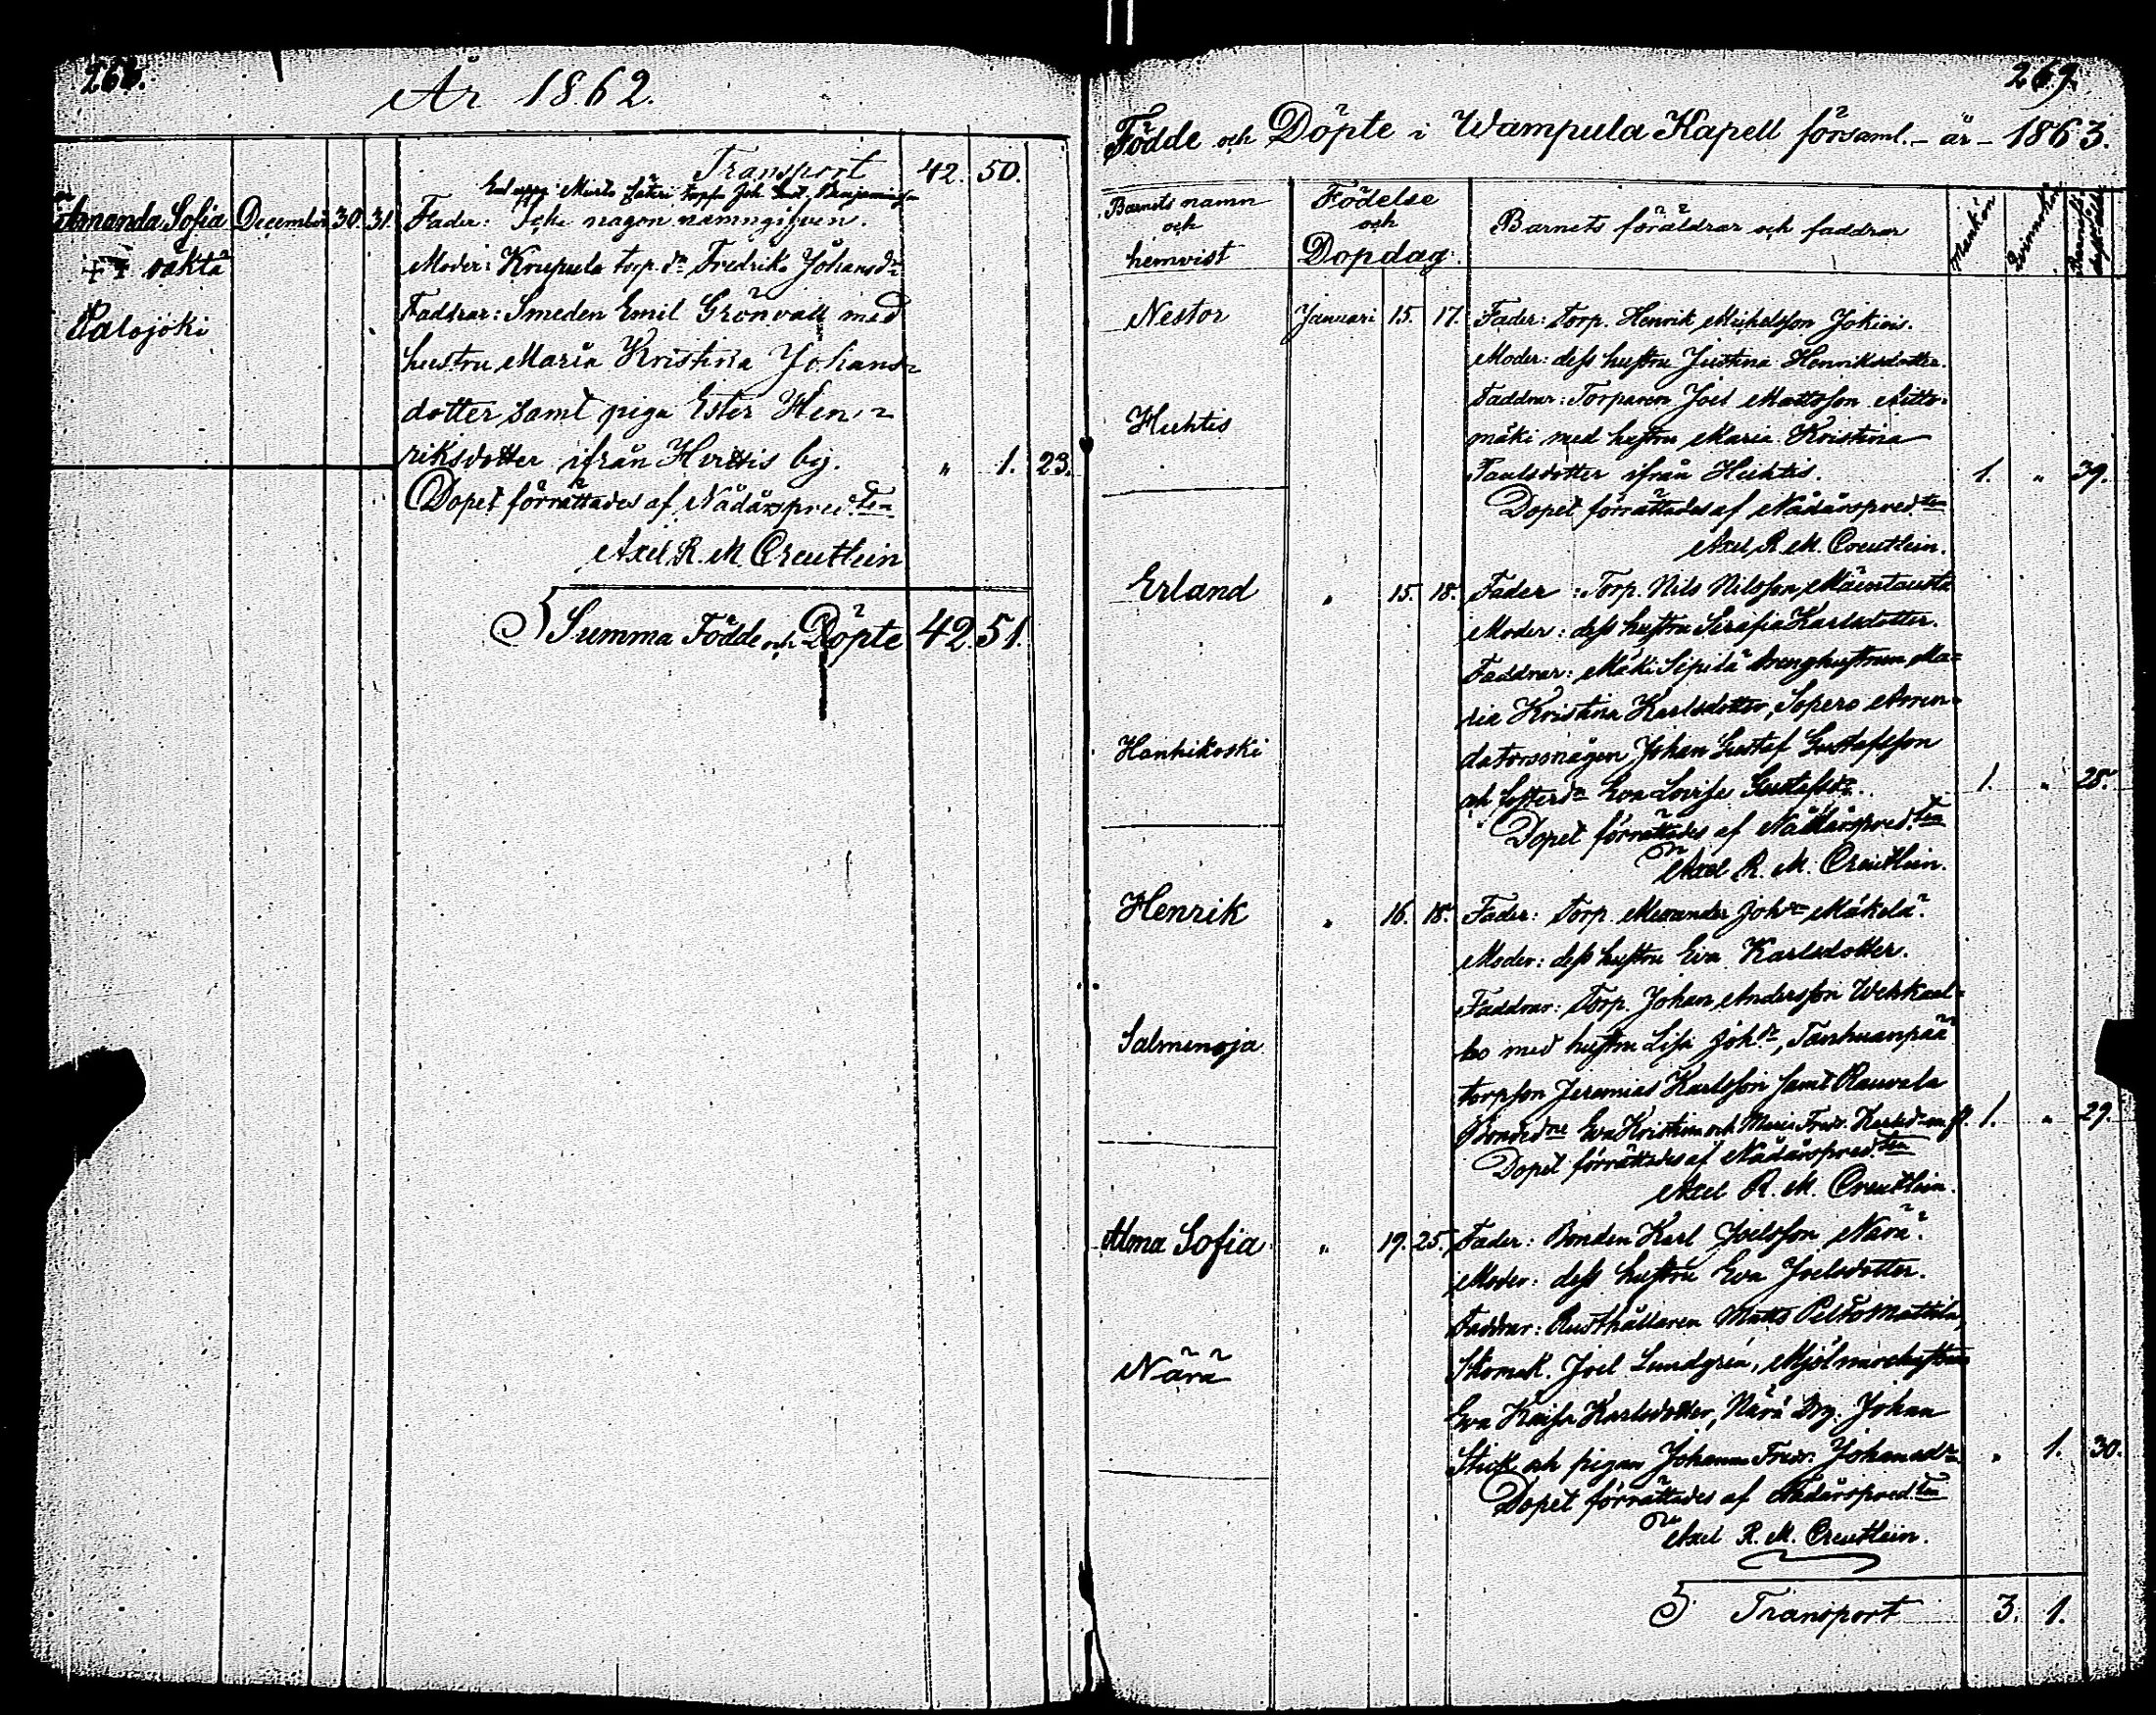 268.
År 1862.
Transport 42. 50.
Enl. uppg. Murto Säteri torpson Joh. Gust. Benjaminsson
Amanda Sofia December 30. 31. Fader: Icke någon namngifven.
++ oäkta
Moder: Krupula torp.dr Fredrika Johansdr
Palojoki
Faddrar: Smeden Emil Grönvall med
hustru Maria Kristina Johans=
dotter samt piga Ester Hen=
riksdotter ifrån Hurttis by. " 1. 23.
Dopet förrättades af Nådårspred.ten
Axel R. M. Creutlein
Summa Födde och Döpte 42. 51.
269.
Födde och Döpte i Wampula Kapell församl. - år - 1863.
Barnets namn och hemvist
Födelse och Dopdag.
Barnets föräldrar och faddrar
Mankön
Qvinnkön
Nestor Januari 15. 17. Fader: Torp. Henrik Michelsson Jokinis.
Moder: dess hustru Justina Henriksdotter.
Faddrar: Torparen Joel Mattsson Niitto=
Huhtis
mäki med hustru Maria Kristina
Paulsdotter ifrån Huhtis. 1. " 39.
Dopet förrättades af Nådårspred.ten
Axel R. M. Creutlein.
Erland " 15. 18. Fader: Torp. Nils Nilsson Mäentausta
Moder: dess hustru Serafia Karlsdotter.
Faddrar: Mäki Sepitä drenghustrun Ma=
ria Kristina Karlsdotter, Sopero Arren=
Hanhikoski
datorsmågen Johan Gustaf Gustafsson
och fosterdr Eva Lovisa Gustafsdr. 1. " 25.
Dopet förrättades af Nådårspred.ten
Axel R. M. Creutlein.
Henrik " 16. 18. Fader: Torp. Alexander Johsn Mäkelä.
Moder: dess hustru Eva Karlsdotter.
Faddrar: Torp. Johan Andersson Wehkaal=
Salmenoja
to med hustru Lisa Johdr, Tanhuanpää
torpson Jeremias Karlsson samt Rauvala
Bondedne Eva Kristina och Maria Fredr. 1. " 29.
Dopet förrättades af Nådårspred.ten
Axel R. M. Creutlein.
Alma Sofia " 19. 25. Fader: Bonden Karl Joelsson Närä.
Moder: dess hustru Eva Joelsdotter.
Faddrar: Rusthållaren Matts Peltomattila,
Närä
Skomak. Joel Lundgren, Mjölnarehustrun
Eva Kaisa Karlsdotter, Närä Drg. Johan
Stick och pigan Johanna Fredr. Johansdr. " 1. 30.
Dopet förrättades af Nådårspred.ten
Axel R. M. Creutlein.
Transport 3. 1.